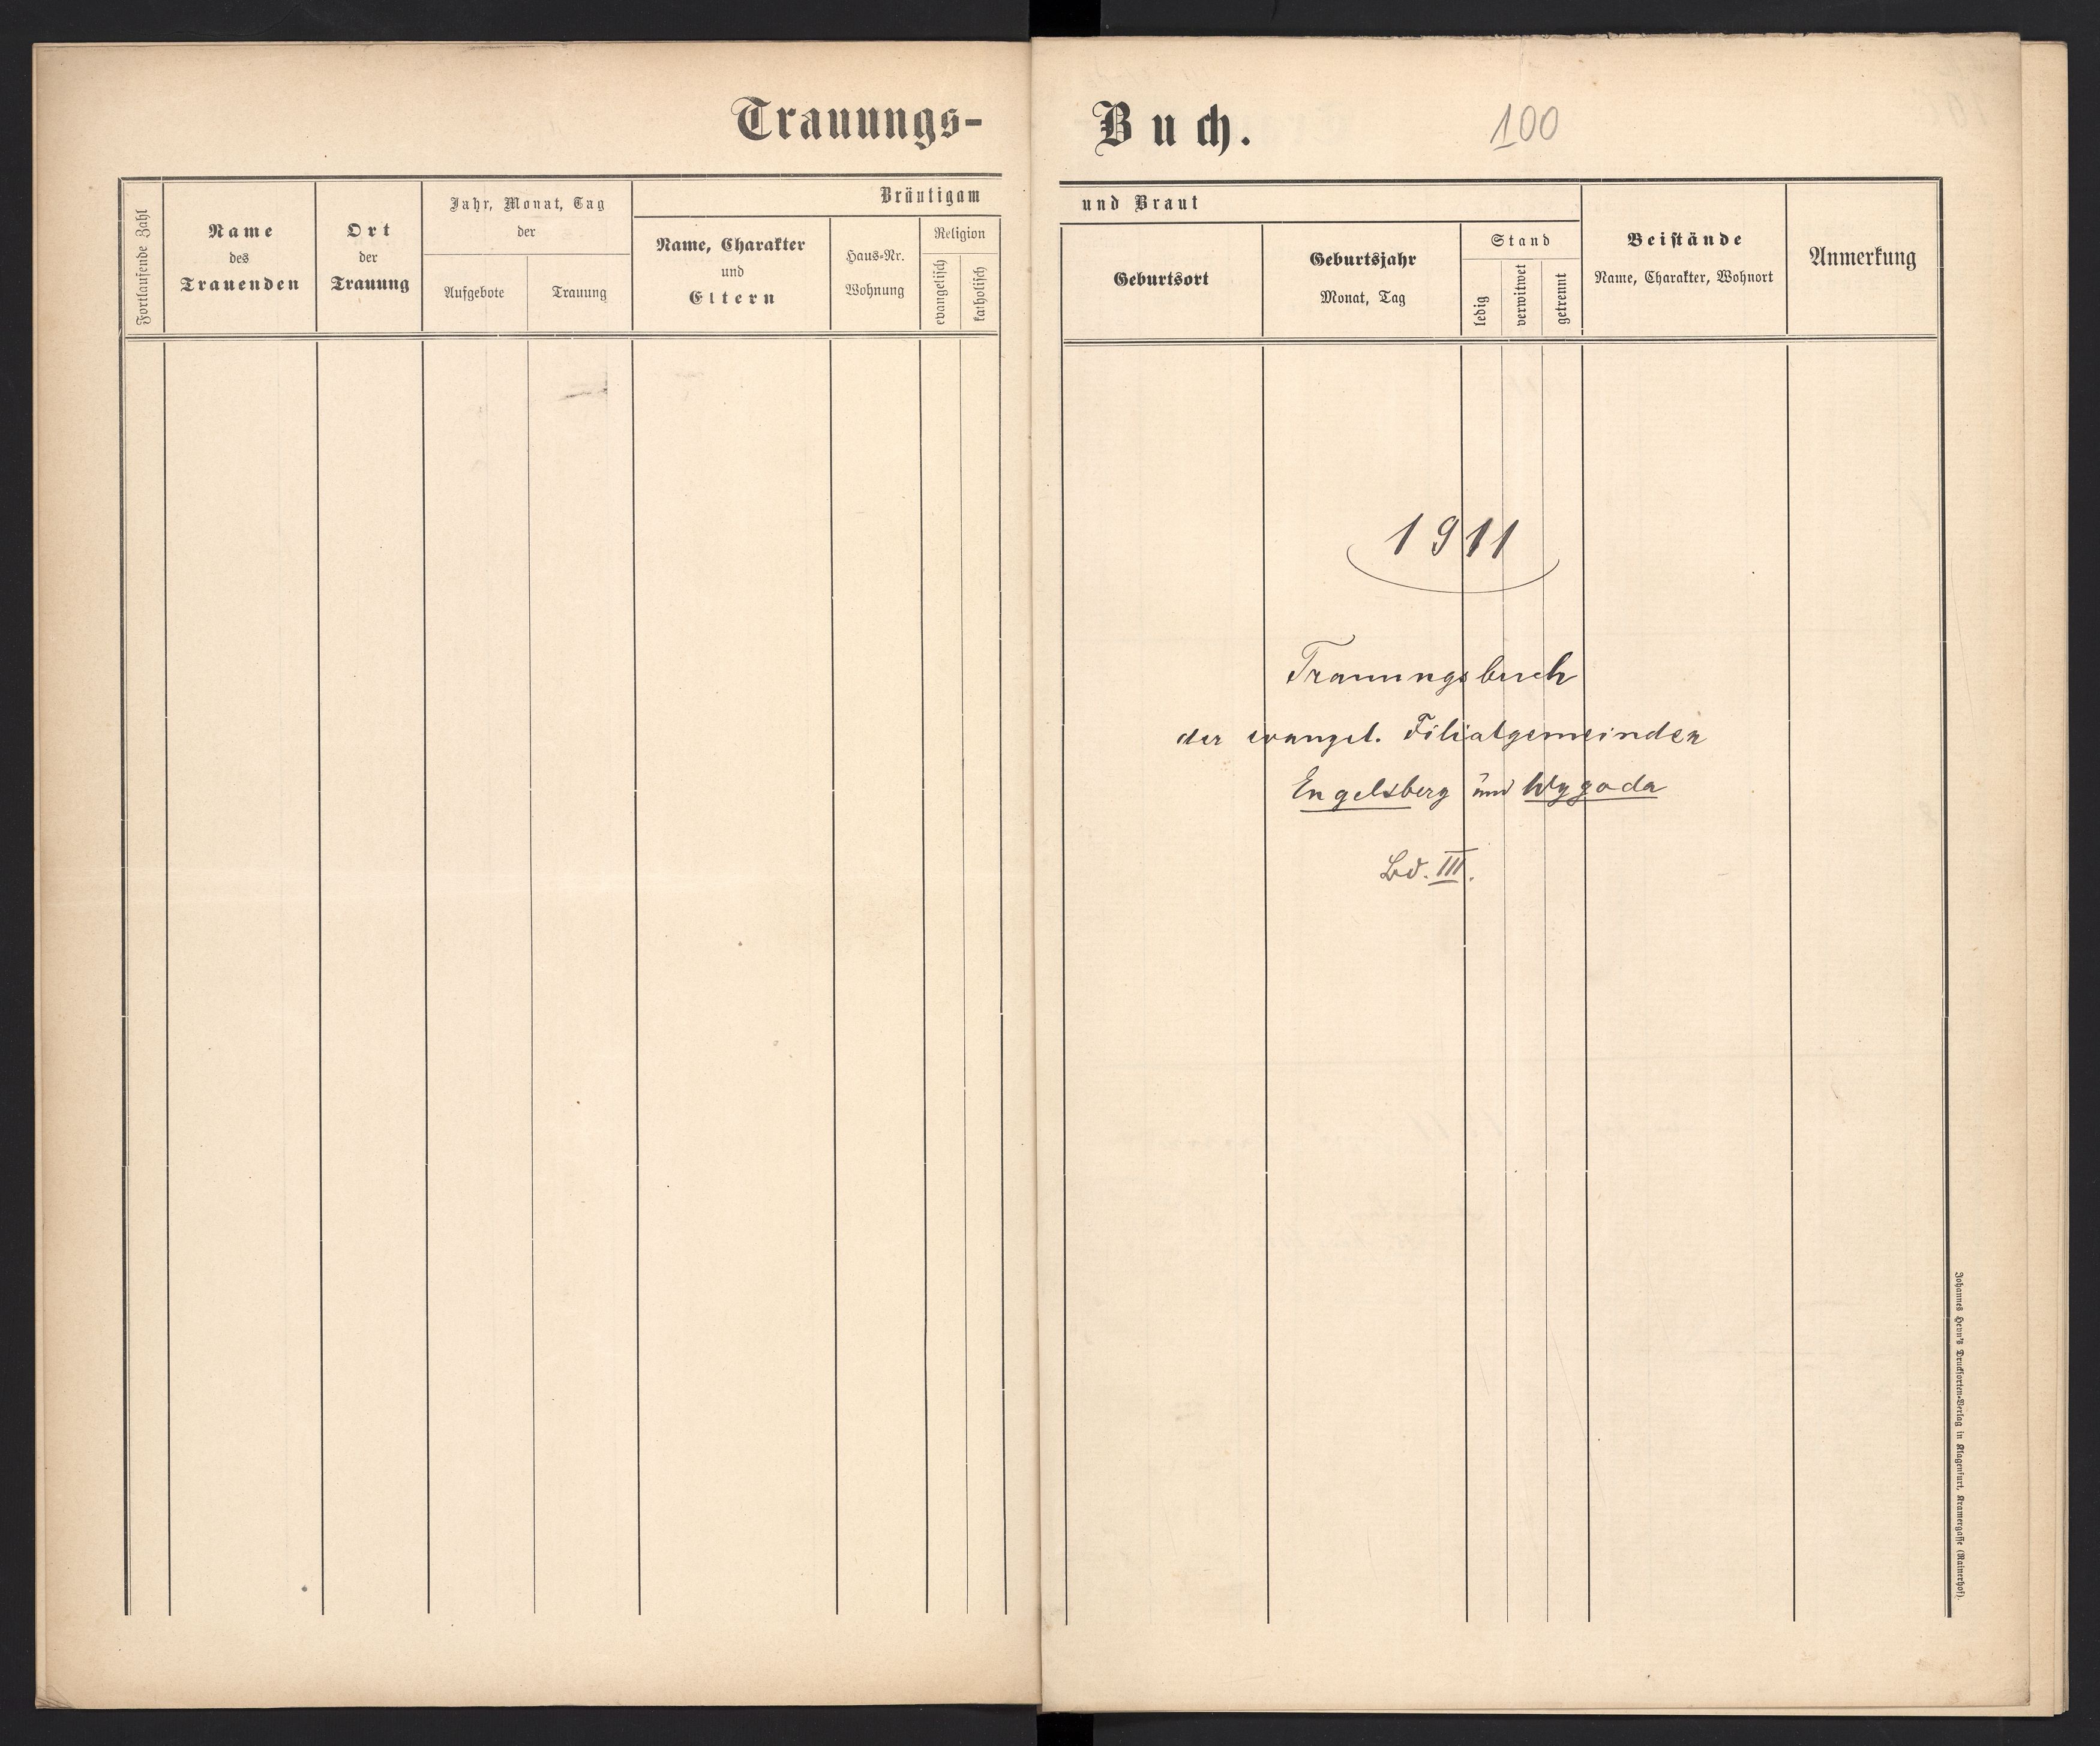 Trauungs-
Buch.
100
Fortlaufende Zahl
Name
des
Trauenden
Ort
der
Trauung
Jahr, Monat, Tag
der
Aufgebote
Trauung
Bräutigam
Name, Charakter
und
Eltern
Haus-Nr.
Wohnung
Religion
evangelisch
katholisch
und Braut
Geburtsort
Geburtsjahr
Monat, Tag
Stand
ledig
verwitwet
getrennt
Beistände
Name, Charakter, Wohnort
Anmerkung
1911
Trauungsbuch
der evangel. Filialgemeinden
Engelsberg und Wygoda
Bd. III.
Johannes Heyn's Drucksorten-Verlag in Klagenfurt, Kramergasse (Rainerhof).